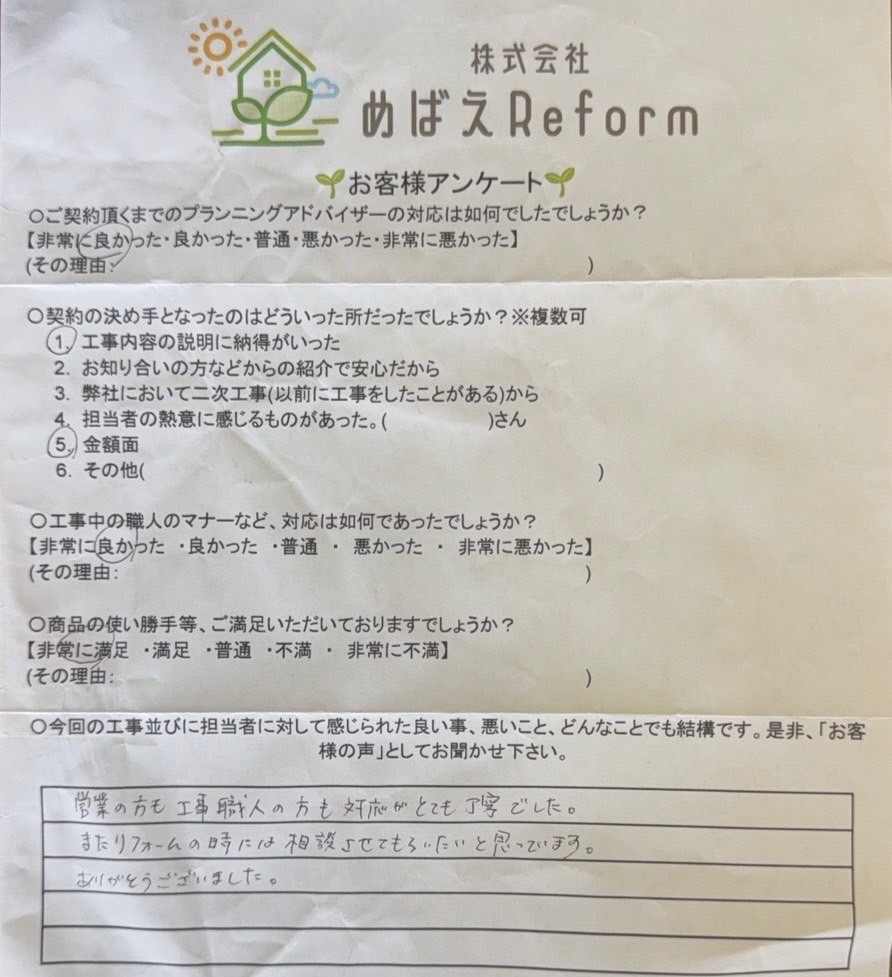 株式会社
めばえReform
お客様アンケート
○ご契約頂くまでのプランニングアドバイザーの対応は如何でしたでしょうか？
【非常に良かった・良かった・普通・悪かった・非常に悪かった】
(その理由: )
○契約の決め手となったのはどういった所だったでしょうか？※複数可
1. 工事内容の説明に納得がいった
2. お知り合いの方などからの紹介で安心だから
3. 弊社において二次工事(以前に工事をしたことがある)から
4. 担当者の熱意に感じるものがあった。( )さん
5. 金額面
6. その他( )
○工事中の職人のマナーなど、対応は如何であったでしょうか？
【非常に良かった ・良かった ・普通 ・ 悪かった ・ 非常に悪かった】
(その理由: )
○商品の使い勝手等、ご満足いただいておりますでしょうか？
【非常に満足 ・満足 ・普通 ・不満 ・ 非常に不満】
(その理由: )
○今回の工事並びに担当者に対して感じられた良い事、悪いこと、どんなことでも結構です。是非、「お客
様の声」としてお聞かせ下さい。
営業の方も工事職人の方も対応がとても丁寧でした。
またリフォームの時には相談させてもらいたいと思っています。
ありがとうございました。